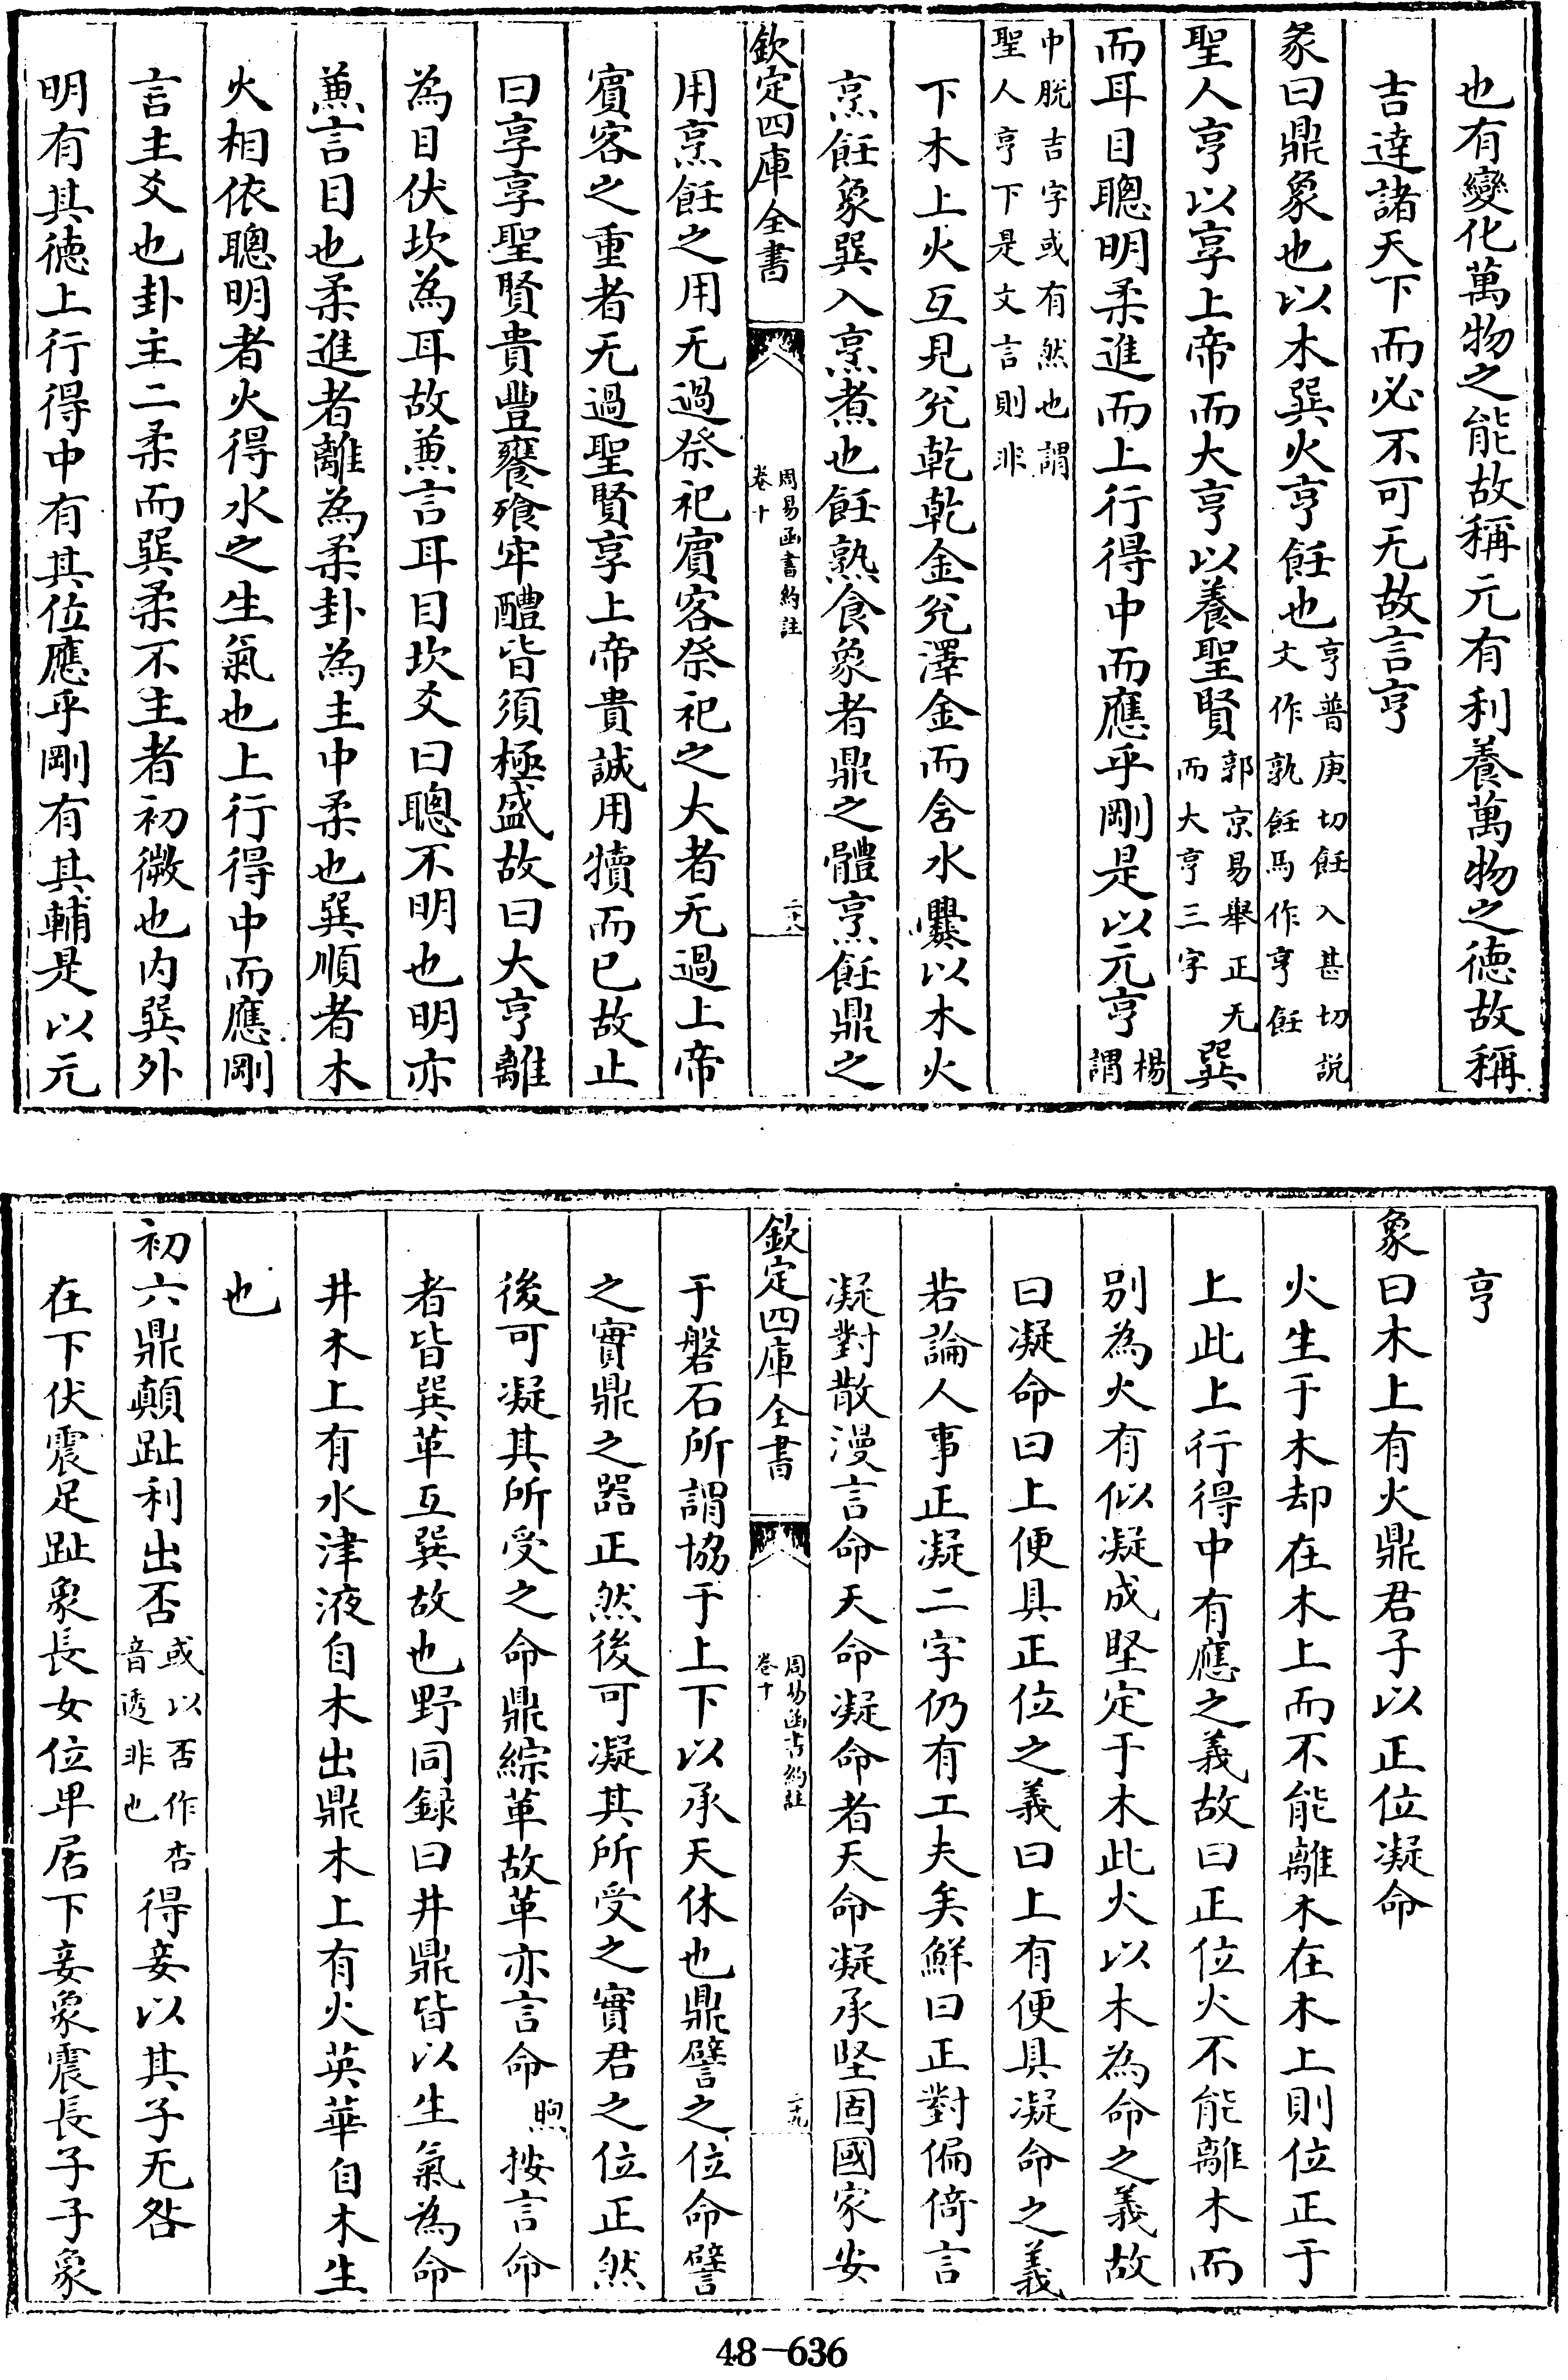 也有變化萬物之能故稱元有利養萬物之德故稱
吉達諸天下而必不可无故言亨
彖曰鼎象也以木巽火亨飪也亨普庚切飪入甚切説文作孰飪馬作亨飪
聖人亨以享上帝而大亨以養聖賢郭京易舉正无而大亨三字巽
而耳目聰明柔進而上行得中而應乎剛是以元亨楊謂
中脫吉字或有然也謂聖人亨下是文言則非
下木上火互見兊乾乾金兊澤金而含水爨以木火
烹飪象巽入烹煮也飪熟食象者鼎之體烹飪鼎之
欽定四庫全書
周易函書約註
卷十
二十八
用烹飪之用无過祭祀賔客祭祀之大者无過上帝
賔客之重者无過聖賢享上帝貴誠用犢而已故止
曰享享聖賢貴豐饔飱牢醴皆須極盛故曰大亨離
為目伏坎為耳故兼言耳目坎爻曰聰不明也明亦
兼言目也柔進者離為柔卦為主中柔也巽順者木
火相依聰明者火得水之生氣也上行得中而應剛
言主爻也卦主二柔而巽柔不主者初微也内巽外
明有其德上行得中有其位應乎剛有其輔是以元
亨
象曰木上有火鼎君子以正位凝命
火生于木却在木上而不能離木在木上則位正于
上此上行得中有應之義故曰正位火不能離木而
别為火有似凝成堅定于木此火以木為命之義故
曰凝命曰上便具正位之義曰上有便具凝命之義
若論人事正凝二字仍有工夫矣鮮曰正對偏倚言
凝對散漫言命天命凝命者天命凝承堅固國家安
欽定四庫全書
周易函書約註
卷十
二十九
于磐石所謂協于上下以承天休也鼎譬之位命譬
之實鼎之器正然後可凝其所受之實君之位正然
後可凝其所受之命鼎綜革故革亦言命煦按言命
者皆巽革互巽故也野同録曰井鼎皆以生氣為命
井木上有水津液自木出鼎木上有火英華自木生
也
初六鼎顛趾利出否或以否作杏音透非也得妾以其子无咎
在下伏震足趾象長女位卑居下妾象震長子子象
48—636